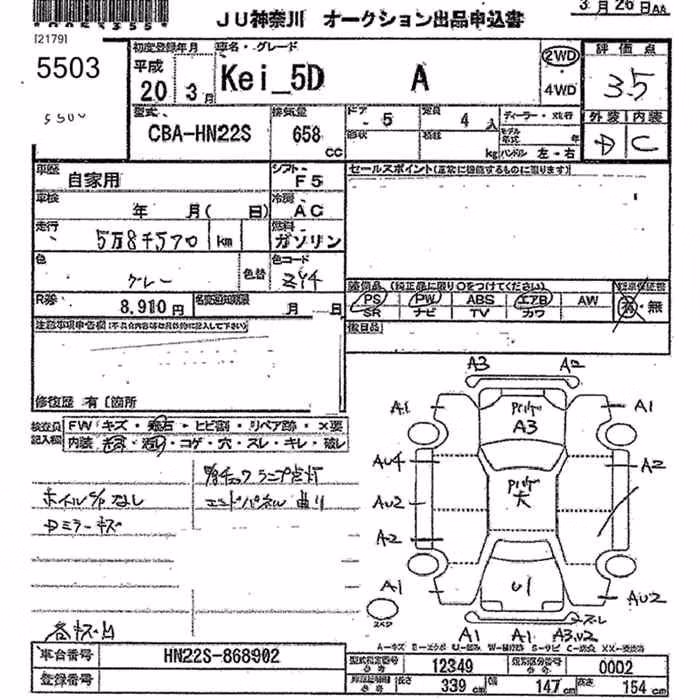 JU神奈川 オークション出品申込書
3月26日
[2179]
5503
5500
初度登録年月
平成
20 3月
車名・グレード
Kei_5D A
2WD
4WD
評価点
3.5
外装 内装
D C
型式
CBA-HN22S
排気量
658 cc
ドア
5
定員
4 人
形状
積載
kg
ディーラー・並行
モデル年式
年
ハンドル 左・右
車歴
自家用
シフト
F5
車検
年 月( 日)
冷房
AC
走行
5万8千570 km
燃料
ガソリン
色
グレー
色替
色コード
ZY4
R券
8,910円
名変通知期限
月 日
セールスポイント(正常に機能するものに限ります)
装備品 (純正品に限り○をつけてください)
PS PW ABS エアB AW
SR ナビ TV カワ
有・無
後日品
注意事項申告欄
修復歴 有[箇所
検査員記入欄
FW キズ・飛石・ヒビ割・リペア跡・×要
内装 ・コゲ・穴・スレ・キレ・破レ
ホイルC/Pなし
Dミラーキズ
チェックランプ点灯
エンドパネル曲り
各キズ凹
A3 A2
A1 A1
A3
AU4 A2
AU2
大
A2
A1 U1 AU2
スレ
A1 A1 A3,U2
車台番号
HN22S-868902
登録番号
型式指定番号
12349
類別区分番号
0002
長さ
339 cm
幅
147 cm
高さ
154 cm